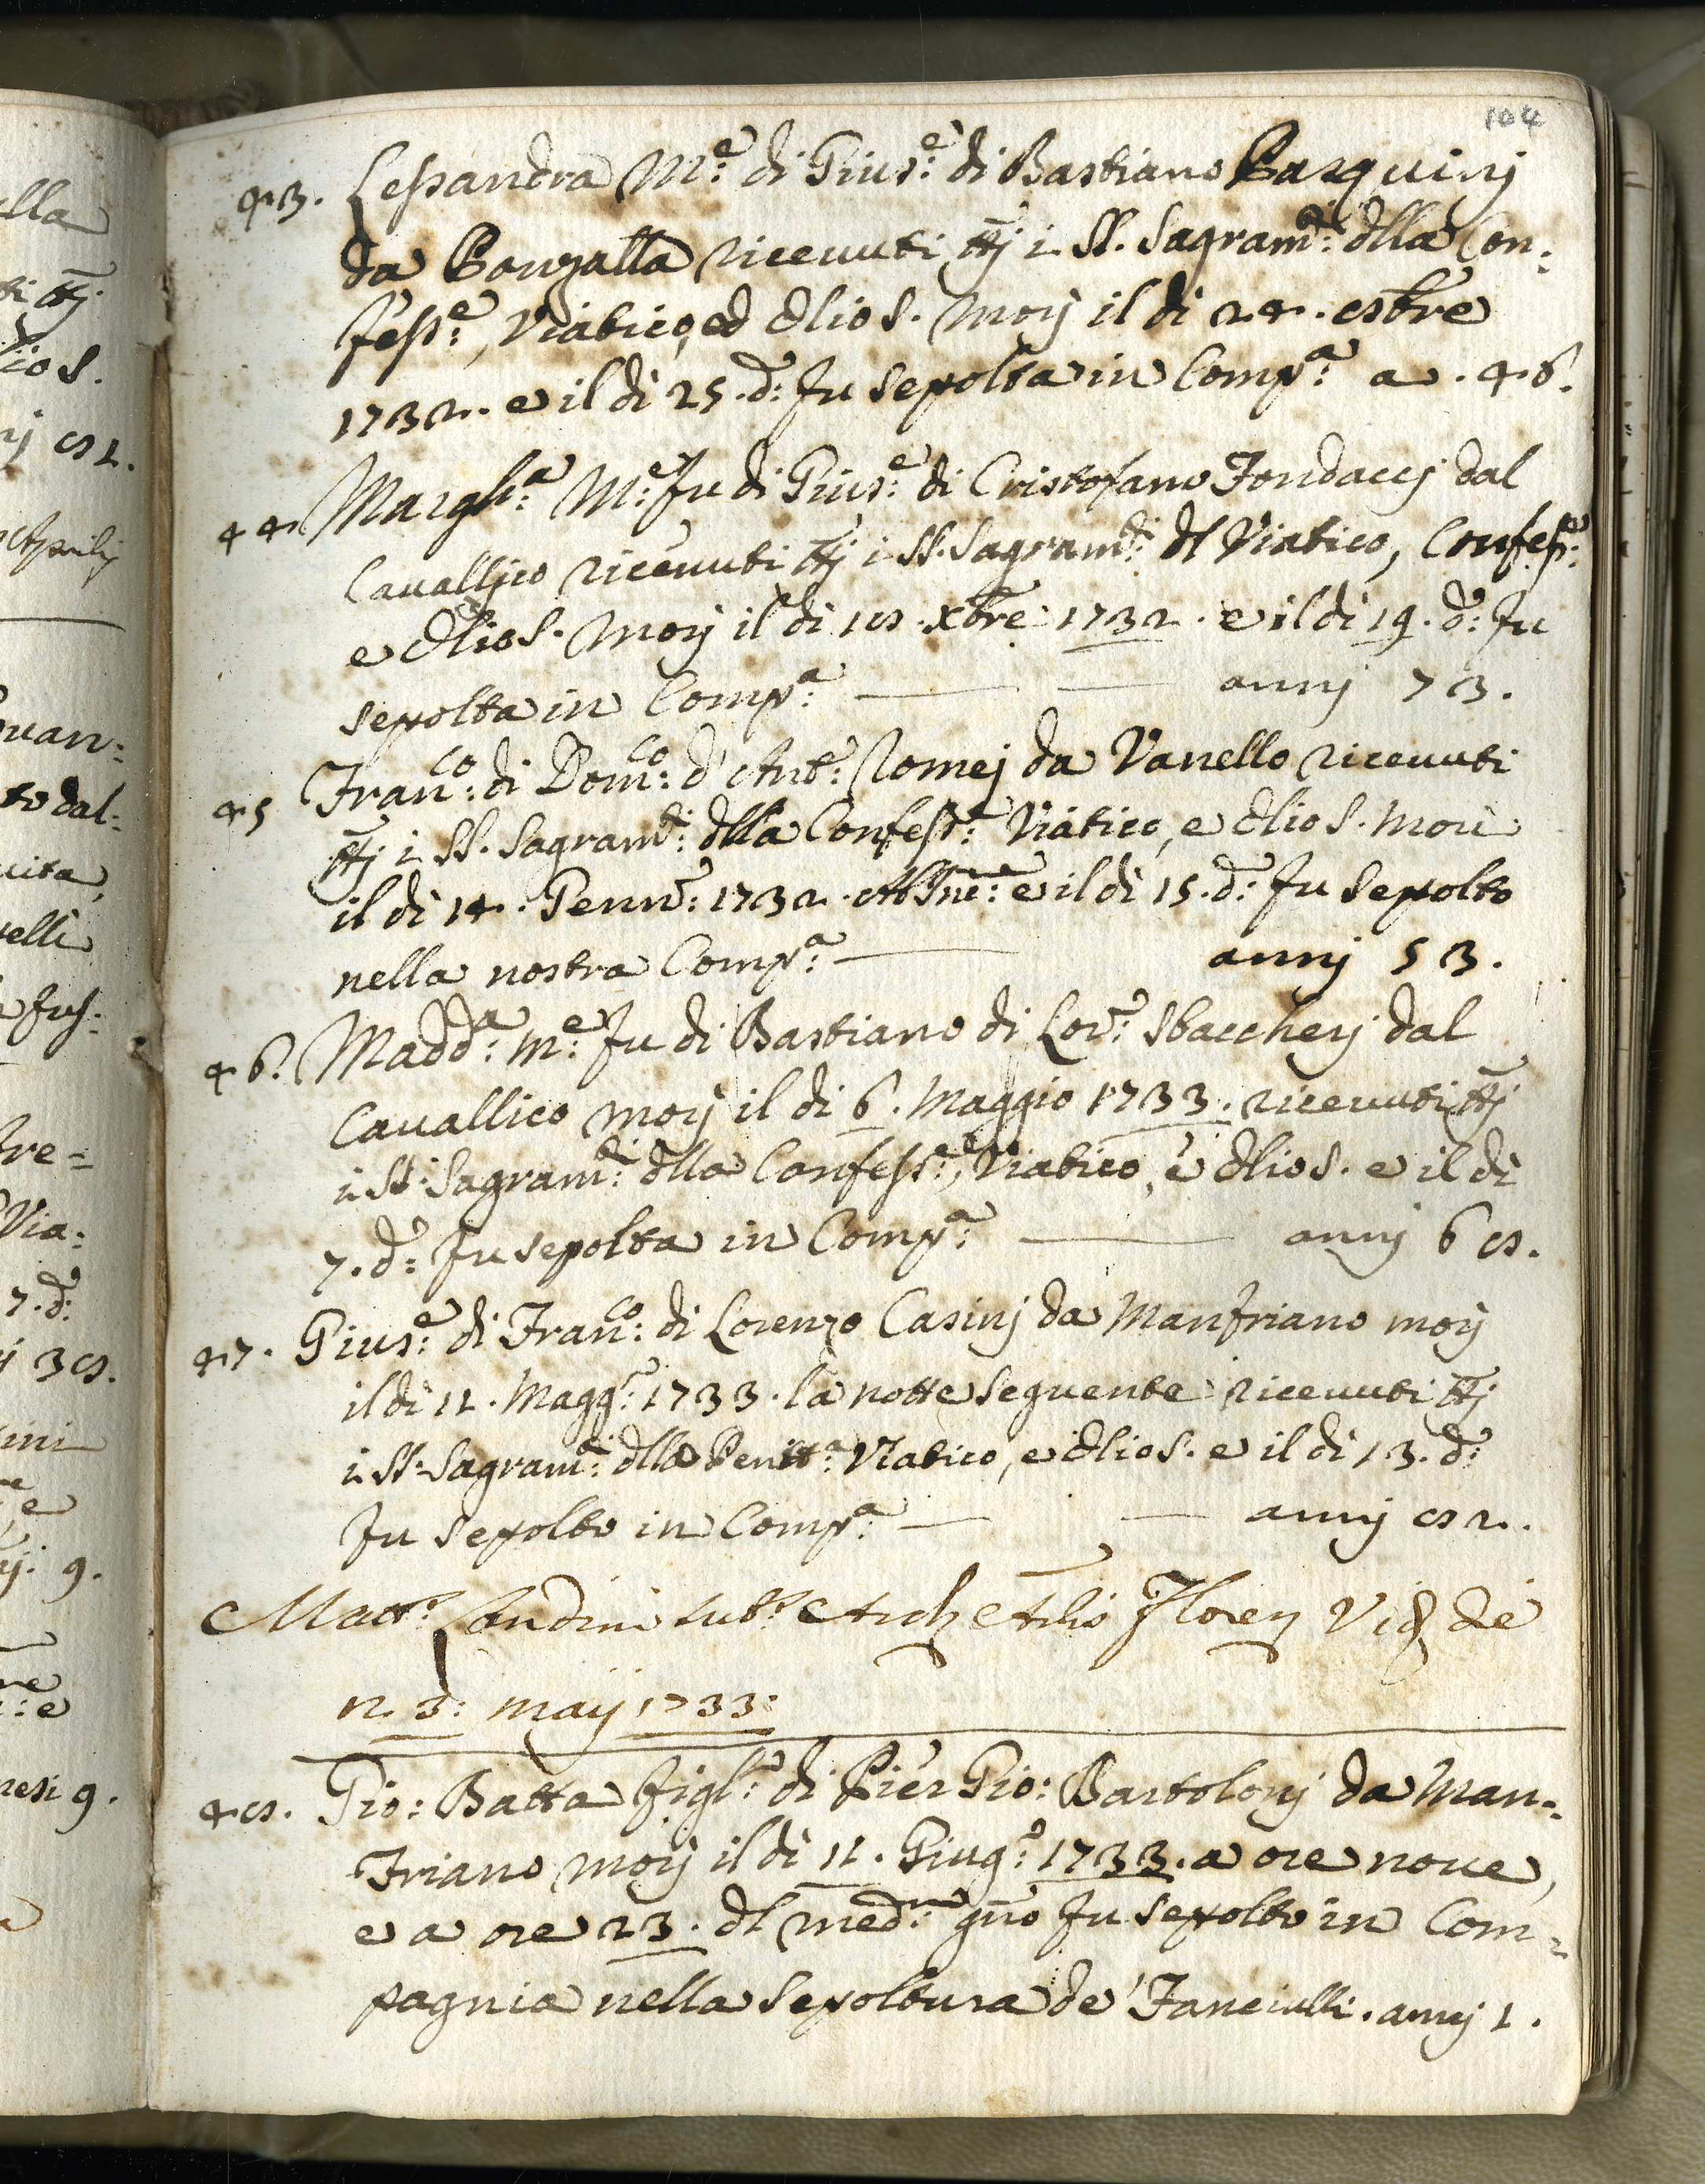 104
43. Lessandra M.e di Gius.e di Bastiano Pasquinj
da Bonzalla riceuuti ttj i SS. Sagram.ti dlla Con:
fess.e, Viatico, ed Olio S. Morj il di 24. 8bre
1732. e il di 25. d.o fu sepolta in Comp.a a. 46.
44. Margh.a M.e fu di Gius.e di Cristofano Fondaccj dal
Cauallico riceuuti ttj i SS. Sagram.ti dl Viatico, Confess.e
e Olio S. Morj il di 18. Xbre 1732. e il di 19. d.o fu
sepolta in Comp.a annj 73.
45 Fran.co di Dom.co d'Ant.o Romej da Vanello riceuuti
ttj i SS. Sagram.ti dlla Confess.e Viatico, e Olio S. Morì
il di 14. Genn.o 1732. Ab Inc.e e il di 15. d.o fu sepolto
nella nostra Comp.a annj 53.
46. Madd.a M.e fu di Bastiano di Lor.o Sbaccherj dal
Cauallico morj il di 6. Maggio 1733. riceuuti ttj
i SS. Sagram.ti dlla Confess.e, Viatico, e Olio S. e il di
7. d.o fu sepolta in Comp.a annj 68.
47. Gius.e di Fran.co di Lorenzo Casinj da Manfriano morj
il di 12. Magg.o 1733. la notte seguente riceuuti ttj
i SS. Sagram.ti dlla Penit.a Viatico, e Olio S. e il di 13. d.o
fu sepolto in Comp.a annj 82.
Matt.s Landini sub.s Arch Floren Vid die
maij 1733:
48. Gio: Batta figl.o di Pier Gio: Bartolonj da Man=
friano morj il di 11. Giug.o 1733. a ore noue,
e a ore 23. dl med.mo gno fu sepolto in Com=
pagnia nella sepoltura de' Fanciulli. annj 1.